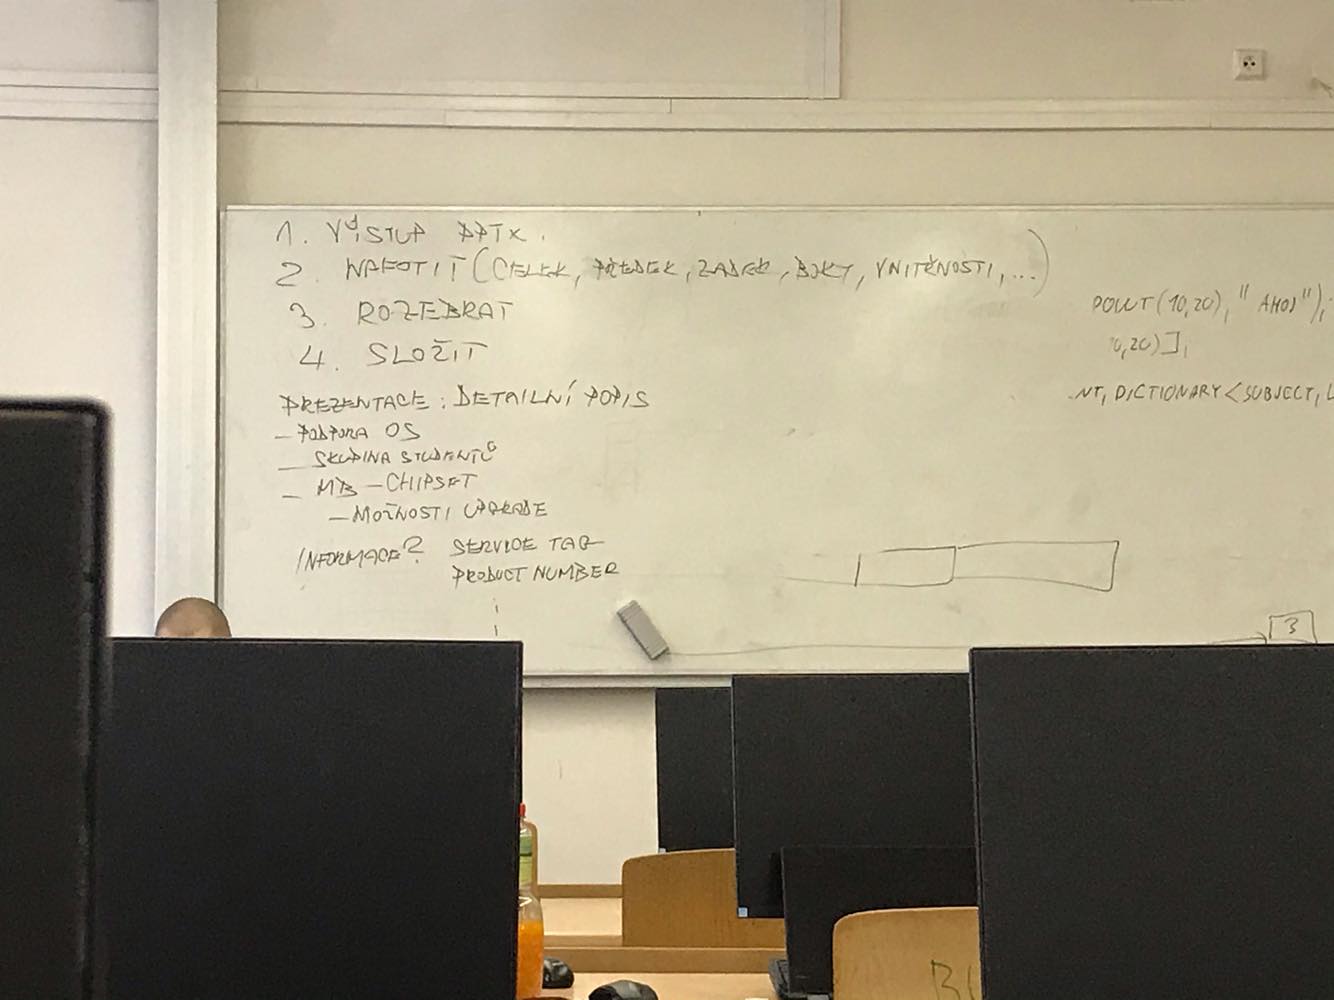 1. VÝSTUP PPTX.
2. NAFOTIT (CELEK, PŘEDEK, ZADEK, BOKY, VNITŘNOSTI, ...)
3. ROZEBRAT
4. SLOŽIT
PREZENTACE: DETAILNÍ POPIS
- PODPORA OS
- SKUPINA STUDENTŮ
- MB - CHIPSET
- MOŽNOSTI UPGRADE
INFORMACE? SERVICE TAG
PRODUCT NUMBER
POINT(10,20), "AHOJ");
0,20)];
NT, DICTIONARY<SUBJECT, L
3